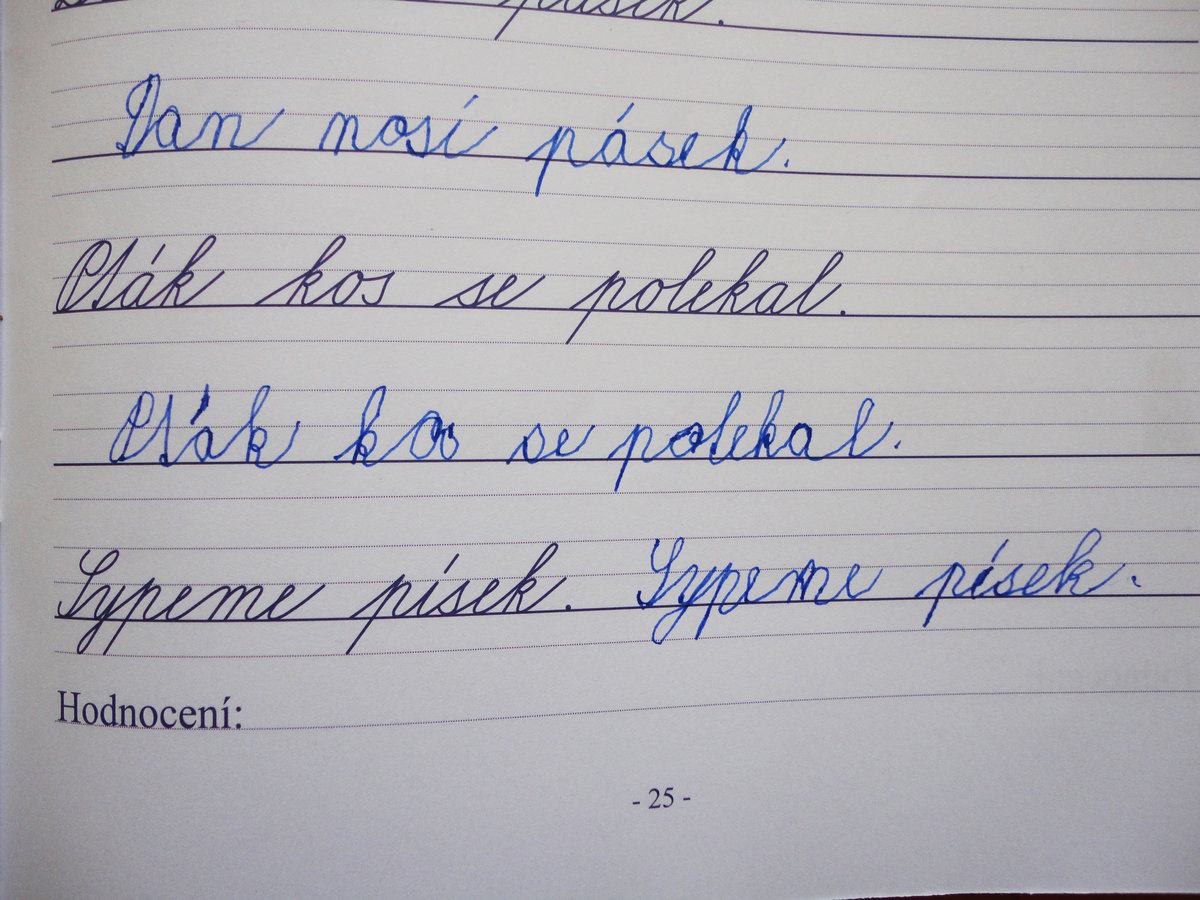 pásek.
Dan nosí pásek.
Pták kos se polekal.
Pták kos se polekal.
Sypeme písek. Sypeme písek.
Hodnocení:
- 25 -